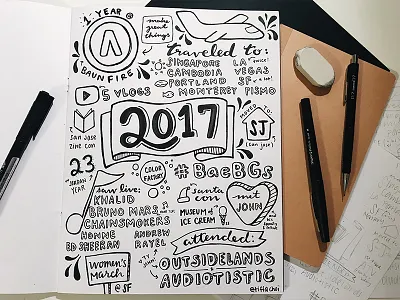 1 YEAR @
BAUNFIRE
make
great
things
traveled to:
SINGAPORE LA (twice!)
CAMBODIA VEGAS
PORTLAND SF
MONTEREY PISMO
5 VLOGS
san jose
zine con
2017
MOVED TO:
SJ
(san jose)
23
JORDAN
YEAR
COLOR
FACTORY
#BaeBGs
saw live:
KHALID
BRUNO MARS
CHAINSMOKERS
HONNE
ANDREW
ED SHEERAN
RAYEL
santa
con
MUSEUM OF
ICE CREAM
met
JOHN
attended:
OUTSIDELANDS
AUDIOTISTIC
women's
march
@ SF
@tiffachoi